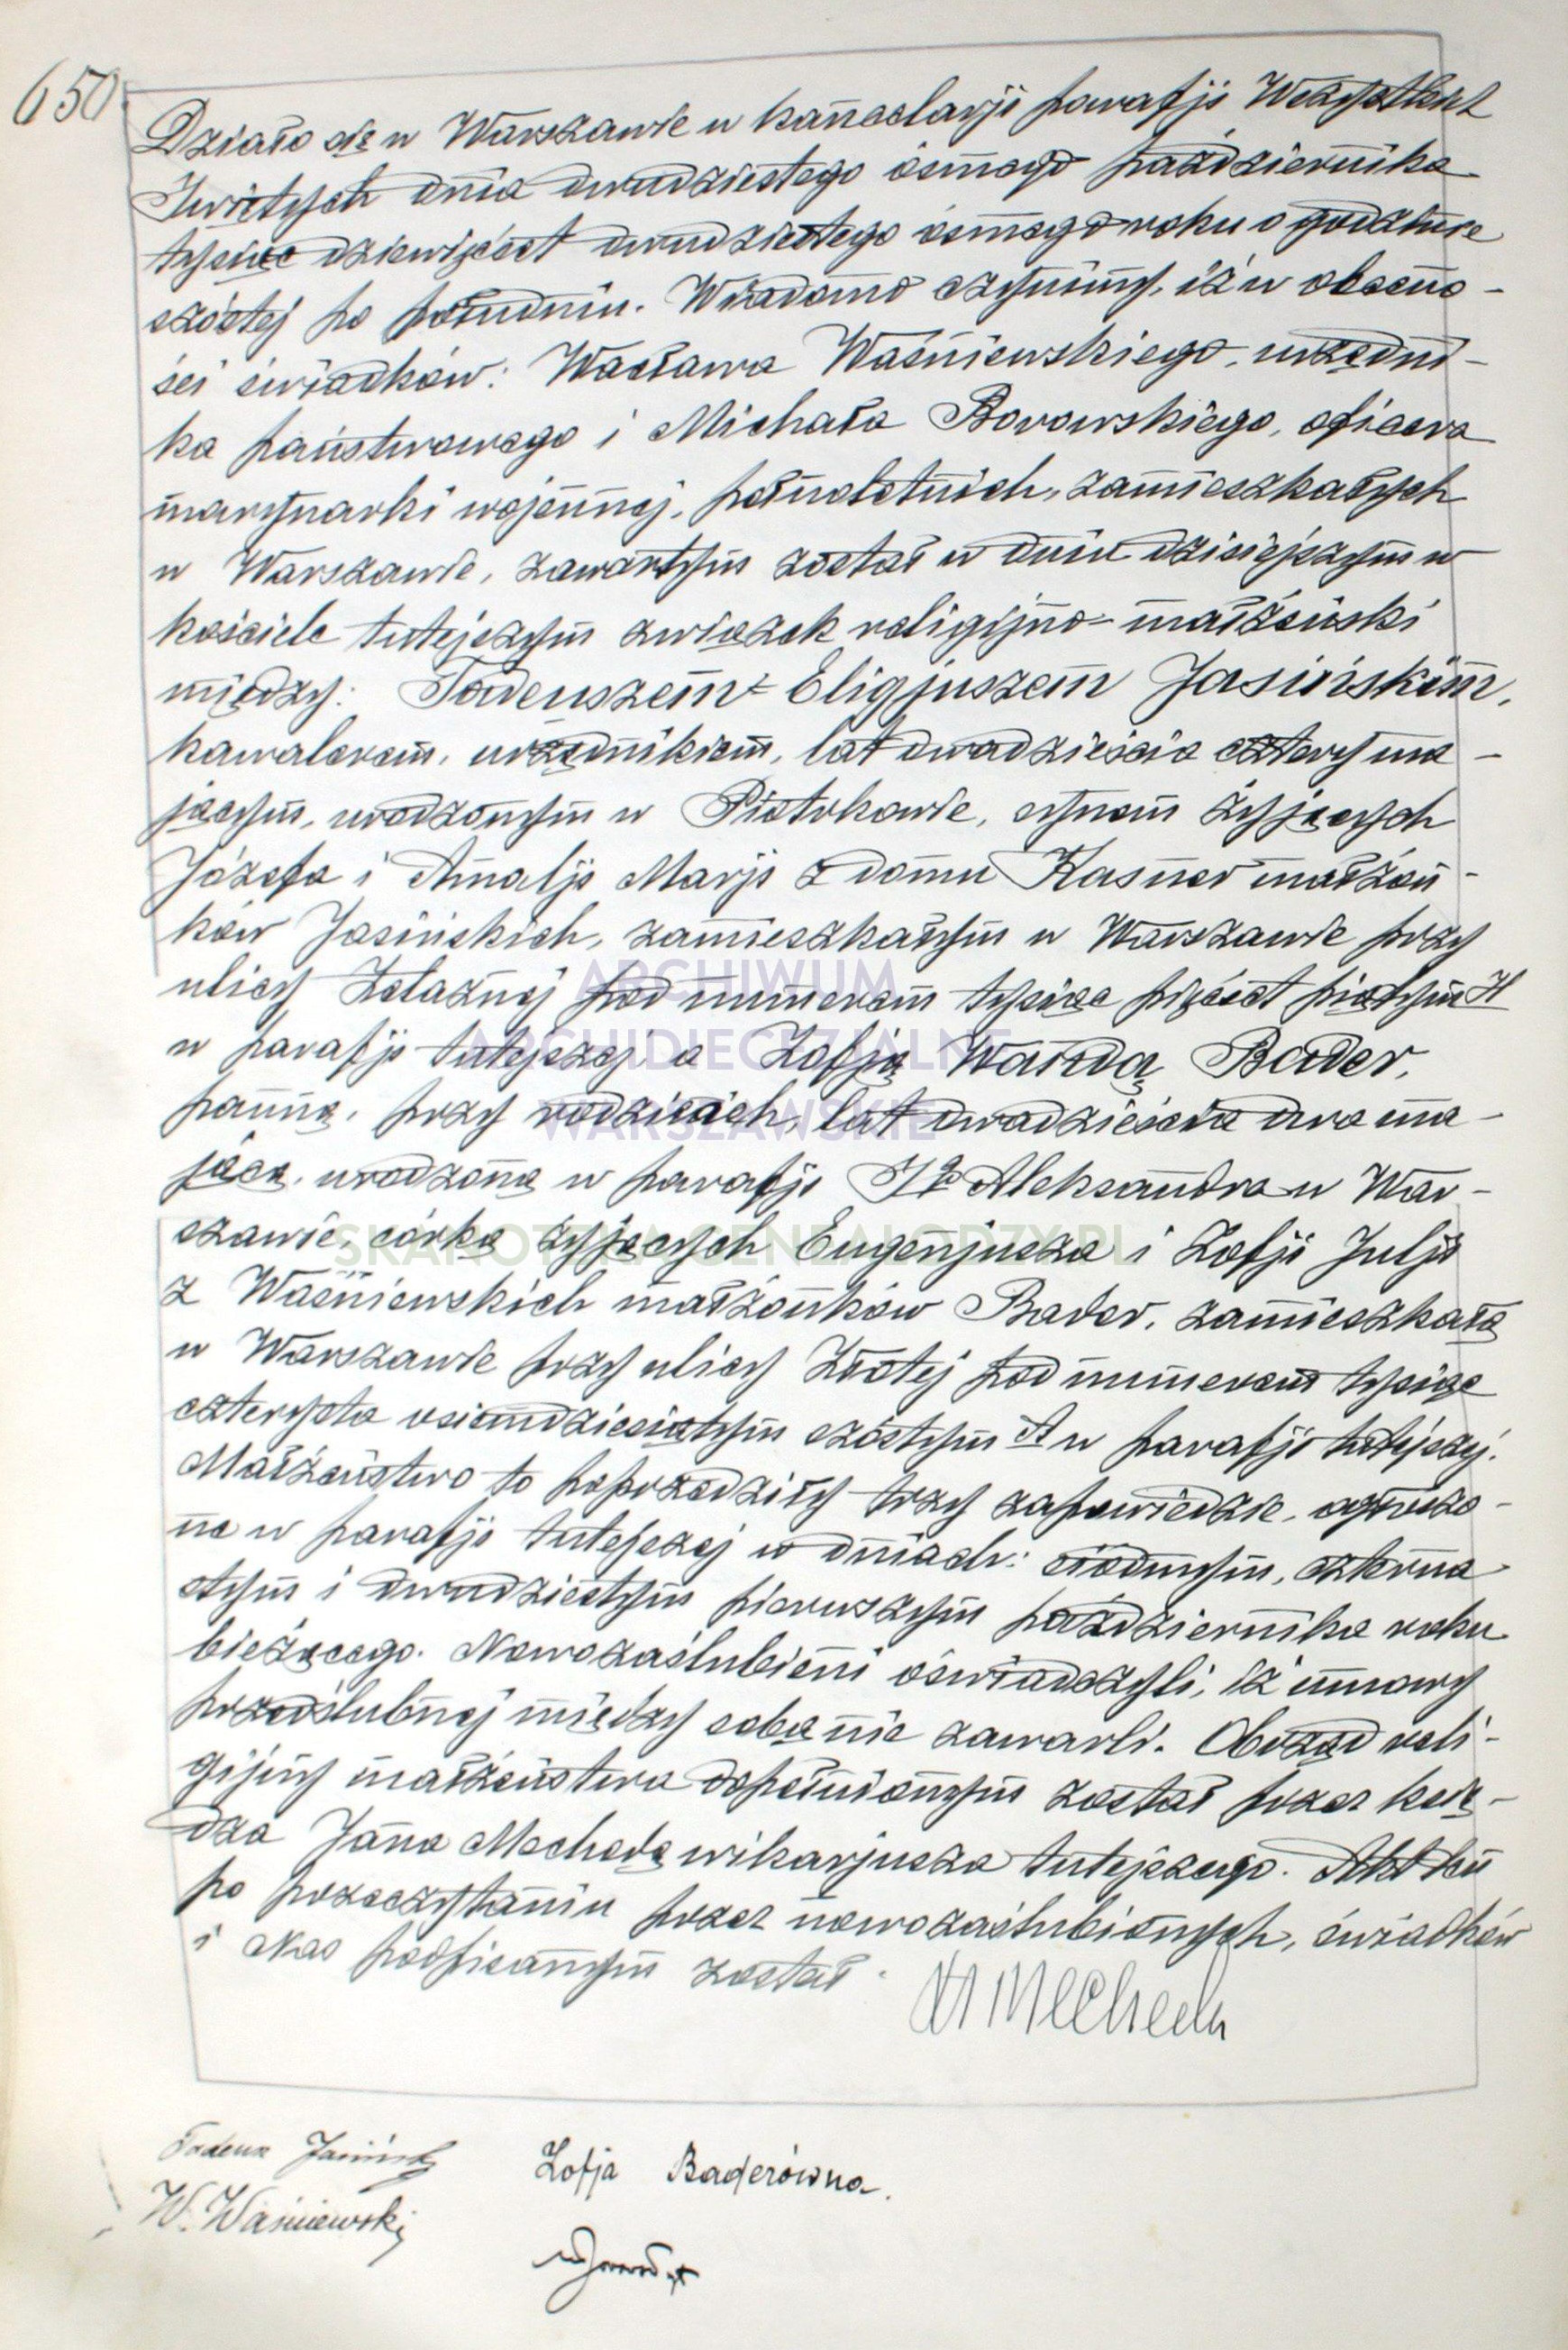 650
Działo się w Warszawie w kancelarji parafji Wszystkich
Świętych dnia dwudziestego ósmego października
tysiąc dziewięćset dwudziestego ósmego roku o godzinie
szóstej po południu. Wiadomo czynimy, iż w obecno-
ści świadków: Wacława Waśniewskiego, urzędni-
ka państwowego i Michała Borowskiego, oficera
marynarki wojennej, pełnoletnich, zamieszkałych
w Warszawie, zawartym został w dniu dzisiejszym w
kościele tutejszym związek religijno-małżeński
między: Tadeuszem-Eligjuszem Jasińskim,
kawalerem, urzędnikiem, lat dwadzieścia cztery ma-
jącym, urodzonym w Piotrkowie, synem żyjących
Józefa i Amalji Marji z domu Kasner małżon-
ków Jasińskich, zamieszkałym w Warszawie przy
ulicy Żelaznej pod numerem tysiąc pięćset piątym H
w parafji tutejszej a Zofją Wandą Bader,
panną, przy rodzicach, lat dwadzieścia dwa ma-
jącą, urodzoną w parafji Ś-go Aleksandra w War-
szawie, córką żyjących Eugenjusza i Zofji Julji
z Waśniewskich małżonków Bader, zamieszkałą
w Warszawie przy ulicy Złotej pod numerem tysiąc
czterysta osiemdziesiątym szóstym A w parafji tutejszej.
Małżeństwo to poprzedziły trzy zapowiedzie, ogłoszo-
ne w parafji tutejszej w dniach: siódmym, czterna-
stym i dwudziestym pierwszym października roku
bieżącego. Nowozaślubieni oświadczyli, iż umowy
przedślubnej między sobą nie zawarli. Obrzęd reli-
gijny małżeństwa dopełnionym został przez księ-
dza Jana Mechedę wikarjusza tutejszego. Akt ten
po przeczytaniu przez nowozaślubionych, świadków
i Nas podpisanym został.
Mecheda
Tadeusz Jasiński
Zofja Baderówna.
W. Waśniewski
ARCHIWUM
ARCHIDIECEZJALNE
WARSZAWSKIE
SKANOTEKA.GENEALODZY.PL